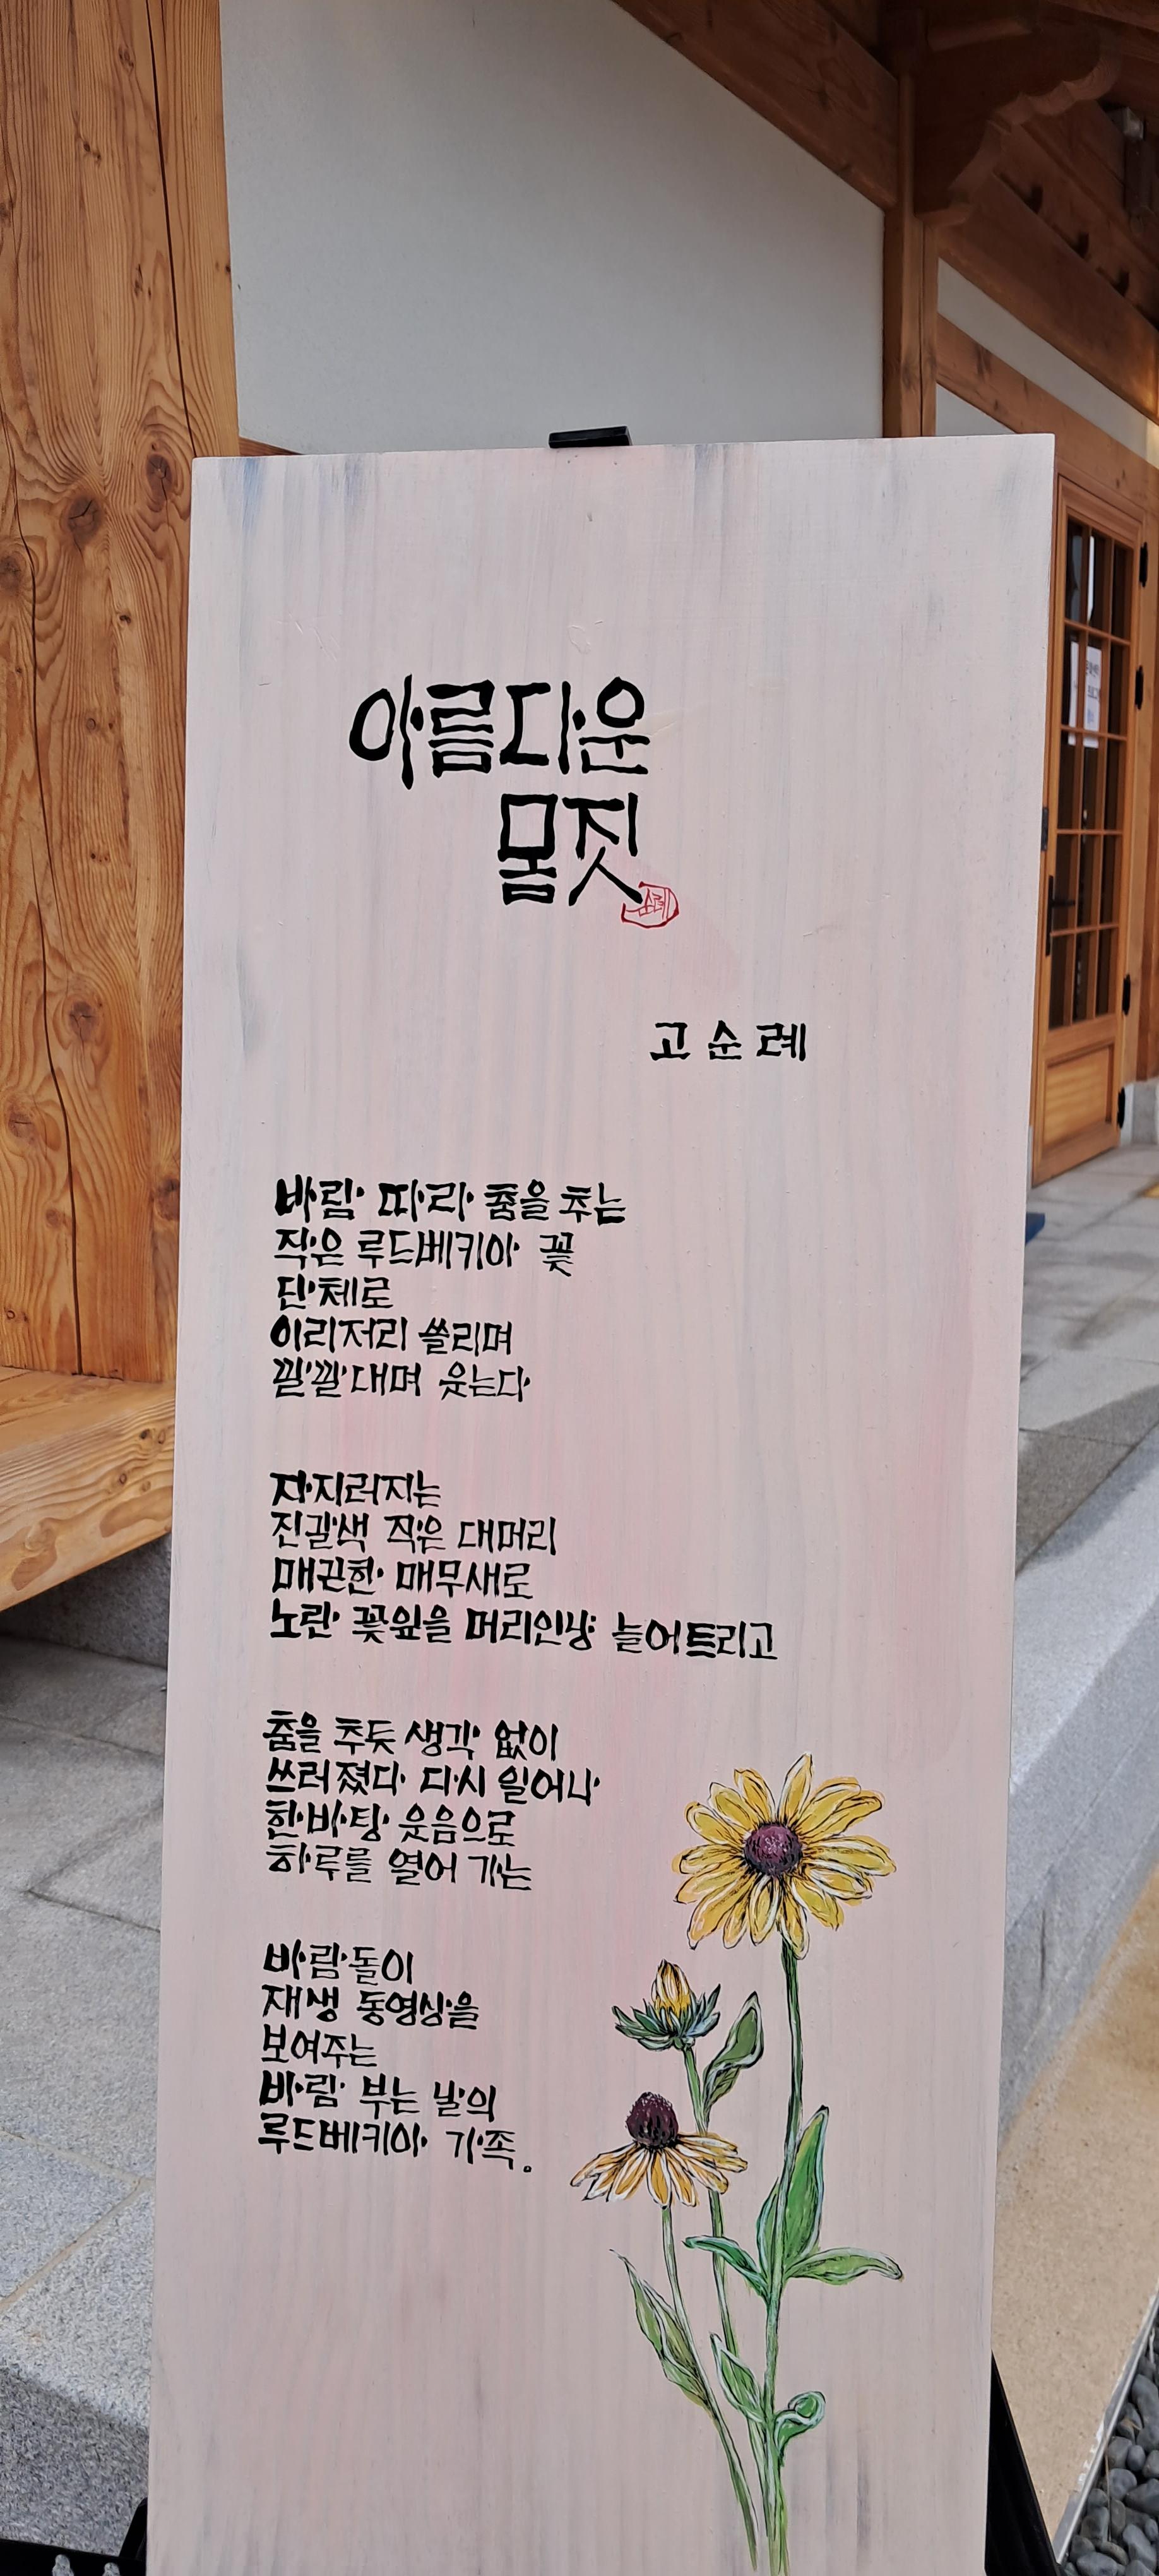 아름다운
몸짓
순례
고순례
바람 따라 춤을 추는
작은 루드베키아 꽃
단체로
이리저리 쏠리며
낄낄대며 웃는다
자지러지는
진갈색 작은 대머리
매끈한 매무새로
노란 꽃잎을 머리인냥 늘어트리고
춤을 추듯 생각 없이
쓰러졌다 다시 일어나
한바탕 웃음으로
하루를 열어 가는
바람돌이
재생 동영상을
보여주는
바람 부는 날의
루드베키아 가족.